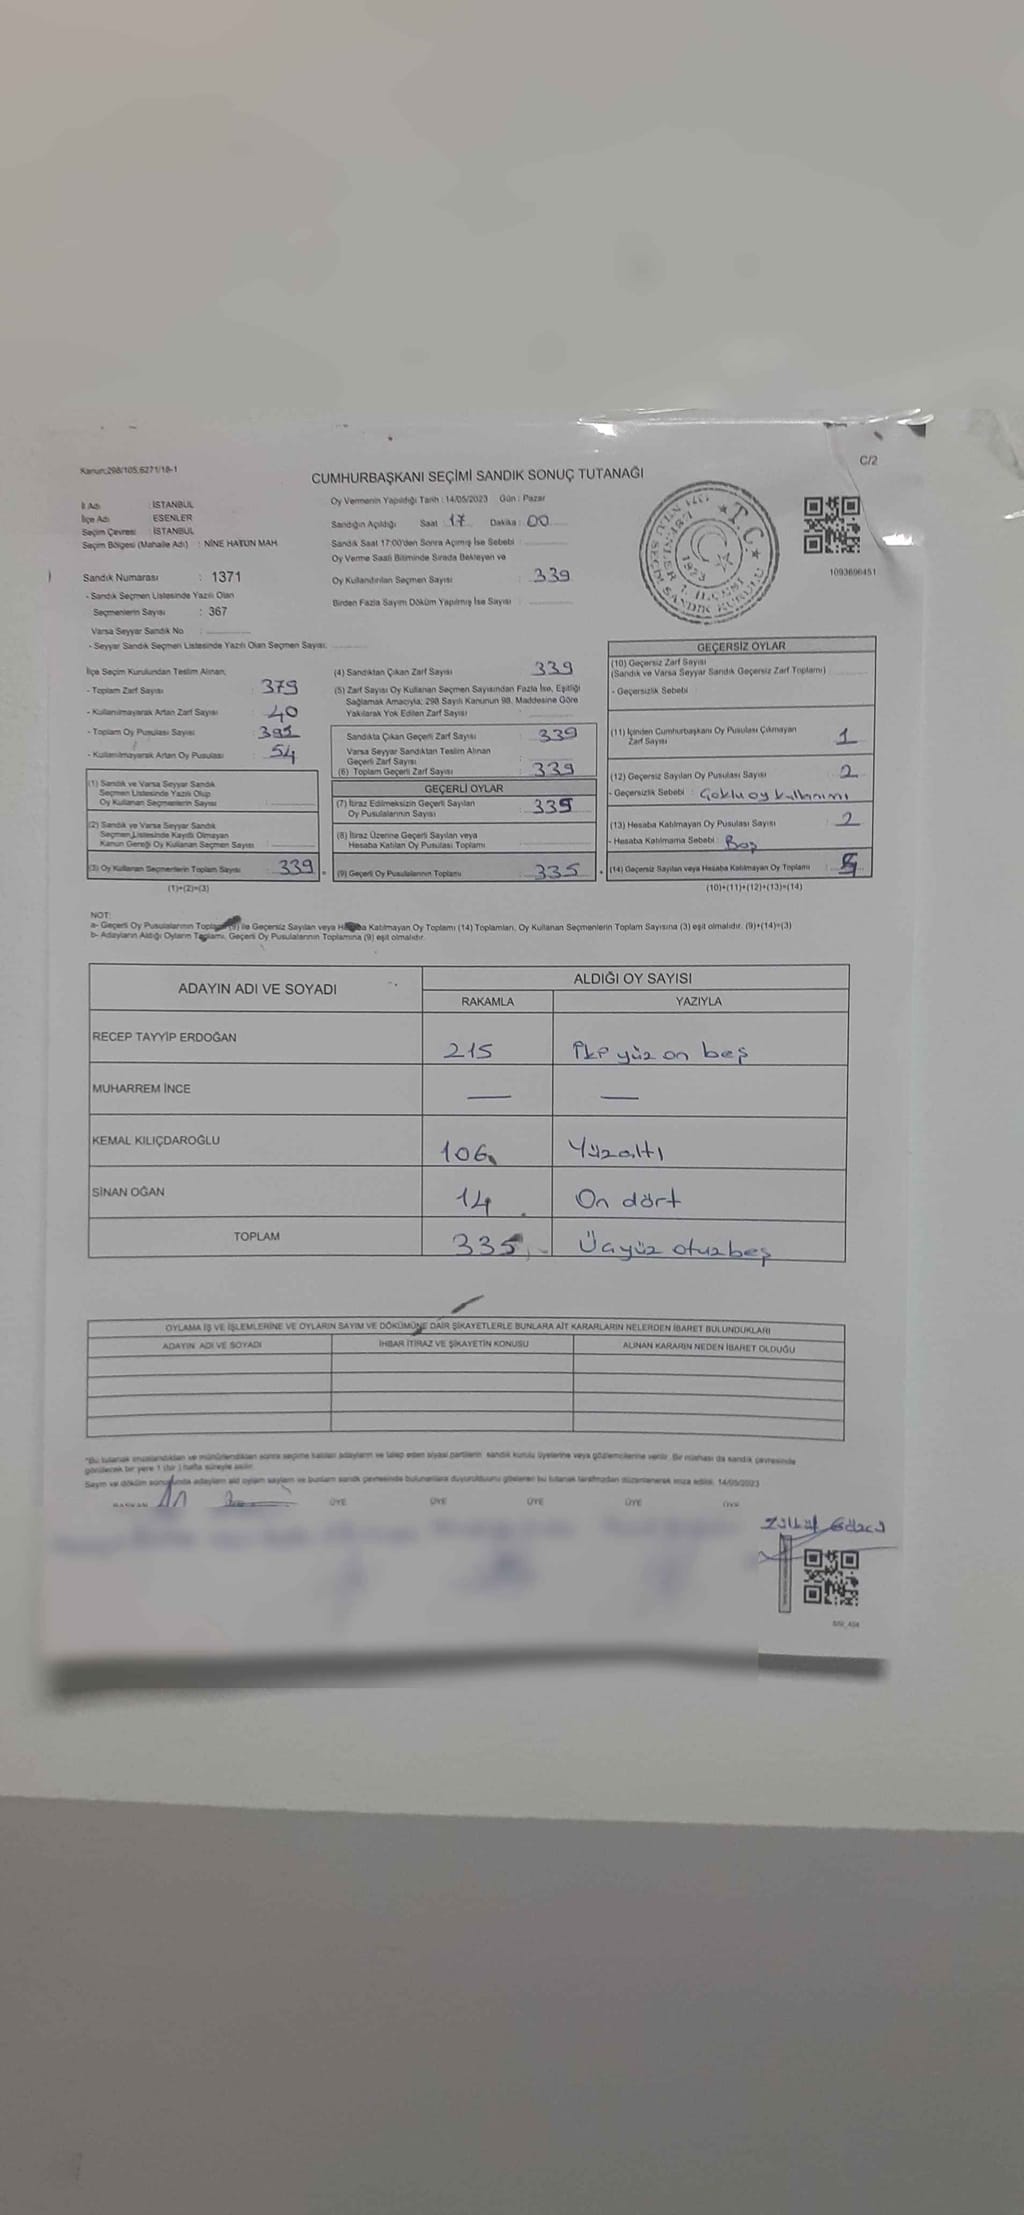 Kanun:298/105;6271/18-1
C/2
CUMHURBAŞKANI SEÇİMİ SANDIK SONUÇ TUTANAĞI
İl Adı : İSTANBUL
İlçe Adı : ESENLER
Seçim Çevresi : İSTANBUL
Seçim Bölgesi (Mahalle Adı) : NİNE HATUN MAH.
Oy Vermenin Yapıldığı Tarih : 14/05/2023 Gün : Pazar
Sandığın Açıldığı Saat : 17 Dakika : 00
Sandık Saat 17:00'den Sonra Açılmış İse Sebebi :
Oy Verme Saati Bitiminde Sırada Bekleyen ve
Oy Kullandırılan Seçmen Sayısı : 339
Birden Fazla Sayım Döküm Yapılmış İse Sayısı :
T.C.
1093696451
Sandık Numarası : 1371
- Sandık Seçmen Listesinde Yazılı Olan
Seçmenlerin Sayısı : 367
Varsa Seyyar Sandık No :
- Seyyar Sandık Seçmen Listesinde Yazılı Olan Seçmen Sayısı:
İlçe Seçim Kurulundan Teslim Alınan;
- Toplam Zarf Sayısı : 379
- Kullanılmayarak Artan Zarf Sayısı : 40
- Toplam Oy Pusulası Sayısı :
- Kullanılmayarak Artan Oy Pusulası : 54
(1) Sandık ve Varsa Seyyar Sandık
Seçmen Listesinde Yazılı Olup
Oy Kullanan Seçmenlerin Sayısı :
(2) Sandık ve Varsa Seyyar Sandık
Seçmen Listesinde Kayıtlı Olmayan
Kanun Gereği Oy Kullanan Seçmen Sayısı :
(3) Oy Kullanan Seçmenlerin Toplam Sayısı : 339
(1)+(2)=(3)
(4) Sandıktan Çıkan Zarf Sayısı : 339
(5) Zarf Sayısı Oy Kullanan Seçmen Sayısından Fazla İse, Eşitliği
Sağlamak Amacıyla; 298 Sayılı Kanunun 98. Maddesine Göre
Yakılarak Yok Edilen Zarf Sayısı :
Sandıkta Çıkan Geçerli Zarf Sayısı : 339
Varsa Seyyar Sandıktan Teslim Alınan
Geçerli Zarf Sayısı :
(6) Toplam Geçerli Zarf Sayısı : 339
GEÇERLİ OYLAR
(7) İtiraz Edilmeksizin Geçerli Sayılan
Oy Pusulalarının Sayısı : 335
(8) İtiraz Üzerine Geçerli Sayılan veya
Hesaba Katılan Oy Pusulası Toplamı :
(9) Geçerli Oy Pusulalarının Toplamı : 335
GEÇERSİZ OYLAR
(10) Geçersiz Zarf Sayısı
(Sandık ve Varsa Seyyar Sandık Geçersiz Zarf Toplamı) :
- Geçersizlik Sebebi :
(11) İçinden Cumhurbaşkanı Oy Pusulası Çıkmayan
Zarf Sayısı : 1
(12) Geçersiz Sayılan Oy Pusulası Sayısı : 2
- Geçersizlik Sebebi : Çoklu oy kullanımı
(13) Hesaba Katılmayan Oy Pusulası Sayısı : 2
- Hesaba Katılmama Sebebi : Boş
(14) Geçersiz Sayılan veya Hesaba Katılmayan Oy Toplamı :
(10)+(11)+(12)+(13)=(14)
NOT:
a- Geçerli Oy Pusulalarının Toplamı (9) ile Geçersiz Sayılan veya Hesaba Katılmayan Oy Toplamı (14) Toplamları, Oy Kullanan Seçmenlerin Toplam Sayısına (3) eşit olmalıdır. (9)+(14)=(3)
b- Adayların Aldığı Oyların Toplamı, Geçerli Oy Pusulalarının Toplamına (9) eşit olmalıdır.
ADAYIN ADI VE SOYADI
ALDIĞI OY SAYISI
RAKAMLA YAZIYLA
RECEP TAYYİP ERDOĞAN 215 İki yüz on beş
MUHARREM İNCE — —
KEMAL KILIÇDAROĞLU 106 Yüzaltı
SİNAN OĞAN 14 On dört
TOPLAM 335 Üçyüz otuzbeş
OYLAMA İŞ VE İŞLEMLERİNE VE OYLARIN SAYIM VE DÖKÜMÜNE DAİR ŞİKAYETLERLE BUNLARA AİT KARARLARIN NELERDEN İBARET BULUNDUKLARI
ADAYIN ADI VE SOYADI İHBAR İTİRAZ VE ŞİKAYETİN KONUSU ALINAN KARARIN NEDEN İBARET OLDUĞU
*Bu tutanak imzalandıktan ve mühürlendikten sonra seçime katılan adayların ve talep eden siyasi partilerin sandık kurulu üyelerine veya gözlemcilerine verilir. Bir nüshası da sandık çevresinde
görülecek bir yere 1 (bir) hafta süreyle asılır.
Sayım ve döküm sonucunda adayların aldığı oyların sayıları ve bunların sandık çevresinde bulunanlara duyurulduğunu gösteren bu tutanak tarafımızdan düzenlenerek imza edildi. 14/05/2023
BAŞKAN ÜYE ÜYE ÜYE ÜYE ÜYE